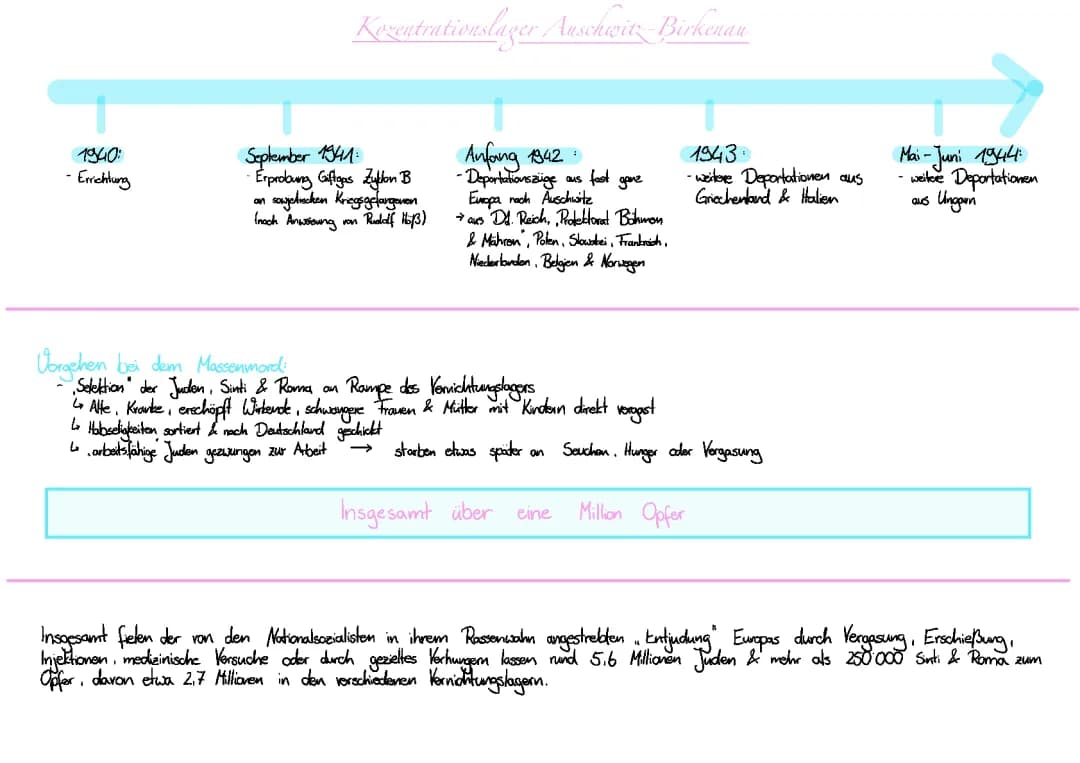 Kozentrationslager Auschwitz-Birkenau
1940:
- Errichtung
September 1941:
- Erprobung Giftgas Zyklon B
an sowjetischen Kriegsgefangenen
(nach Anweisung von Rudolf Höß)
Anfang 1942:
- Deportationszüge aus fast ganz
Europa nach Auschwitz
→ aus Dt. Reich, „Protektorat Böhmen
& Mähren", Polen, Slowakei, Frankreich,
Niederlanden, Belgien & Norwegen
1943:
- weitere Deportationen aus
Griechenland & Italien
Mai-Juni 1944:
- weitere Deportationen
aus Ungarn
Vorgehen bei dem Massenmord:
- „Selektion" der Juden, Sinti & Roma an Rampe des Vernichtungslagers
↳ Alte, Kranke, erschöpft Wirkende, schwangere Frauen & Mütter mit Kindern direkt vergast
↳ Habseligkeiten sortiert & nach Deutschland geschickt
↳ „arbeitsfähige" Juden gezwungen zur Arbeit → starben etwas später an Seuchen, Hunger oder Vergasung
Insgesamt über eine Million Opfer
Insgesamt fielen der von den Nationalsozialisten in ihrem Rassenwahn angestrebten „Entjudung" Europas durch Vergasung, Erschießung,
Injektionen, medizinische Versuche oder durch gezieltes Verhungern lassen rund 5,6 Millionen Juden & mehr als 250'000 Sinti & Roma zum
Opfer, davon etwa 2,7 Millionen in den verschiedenen Vernichtungslagern.